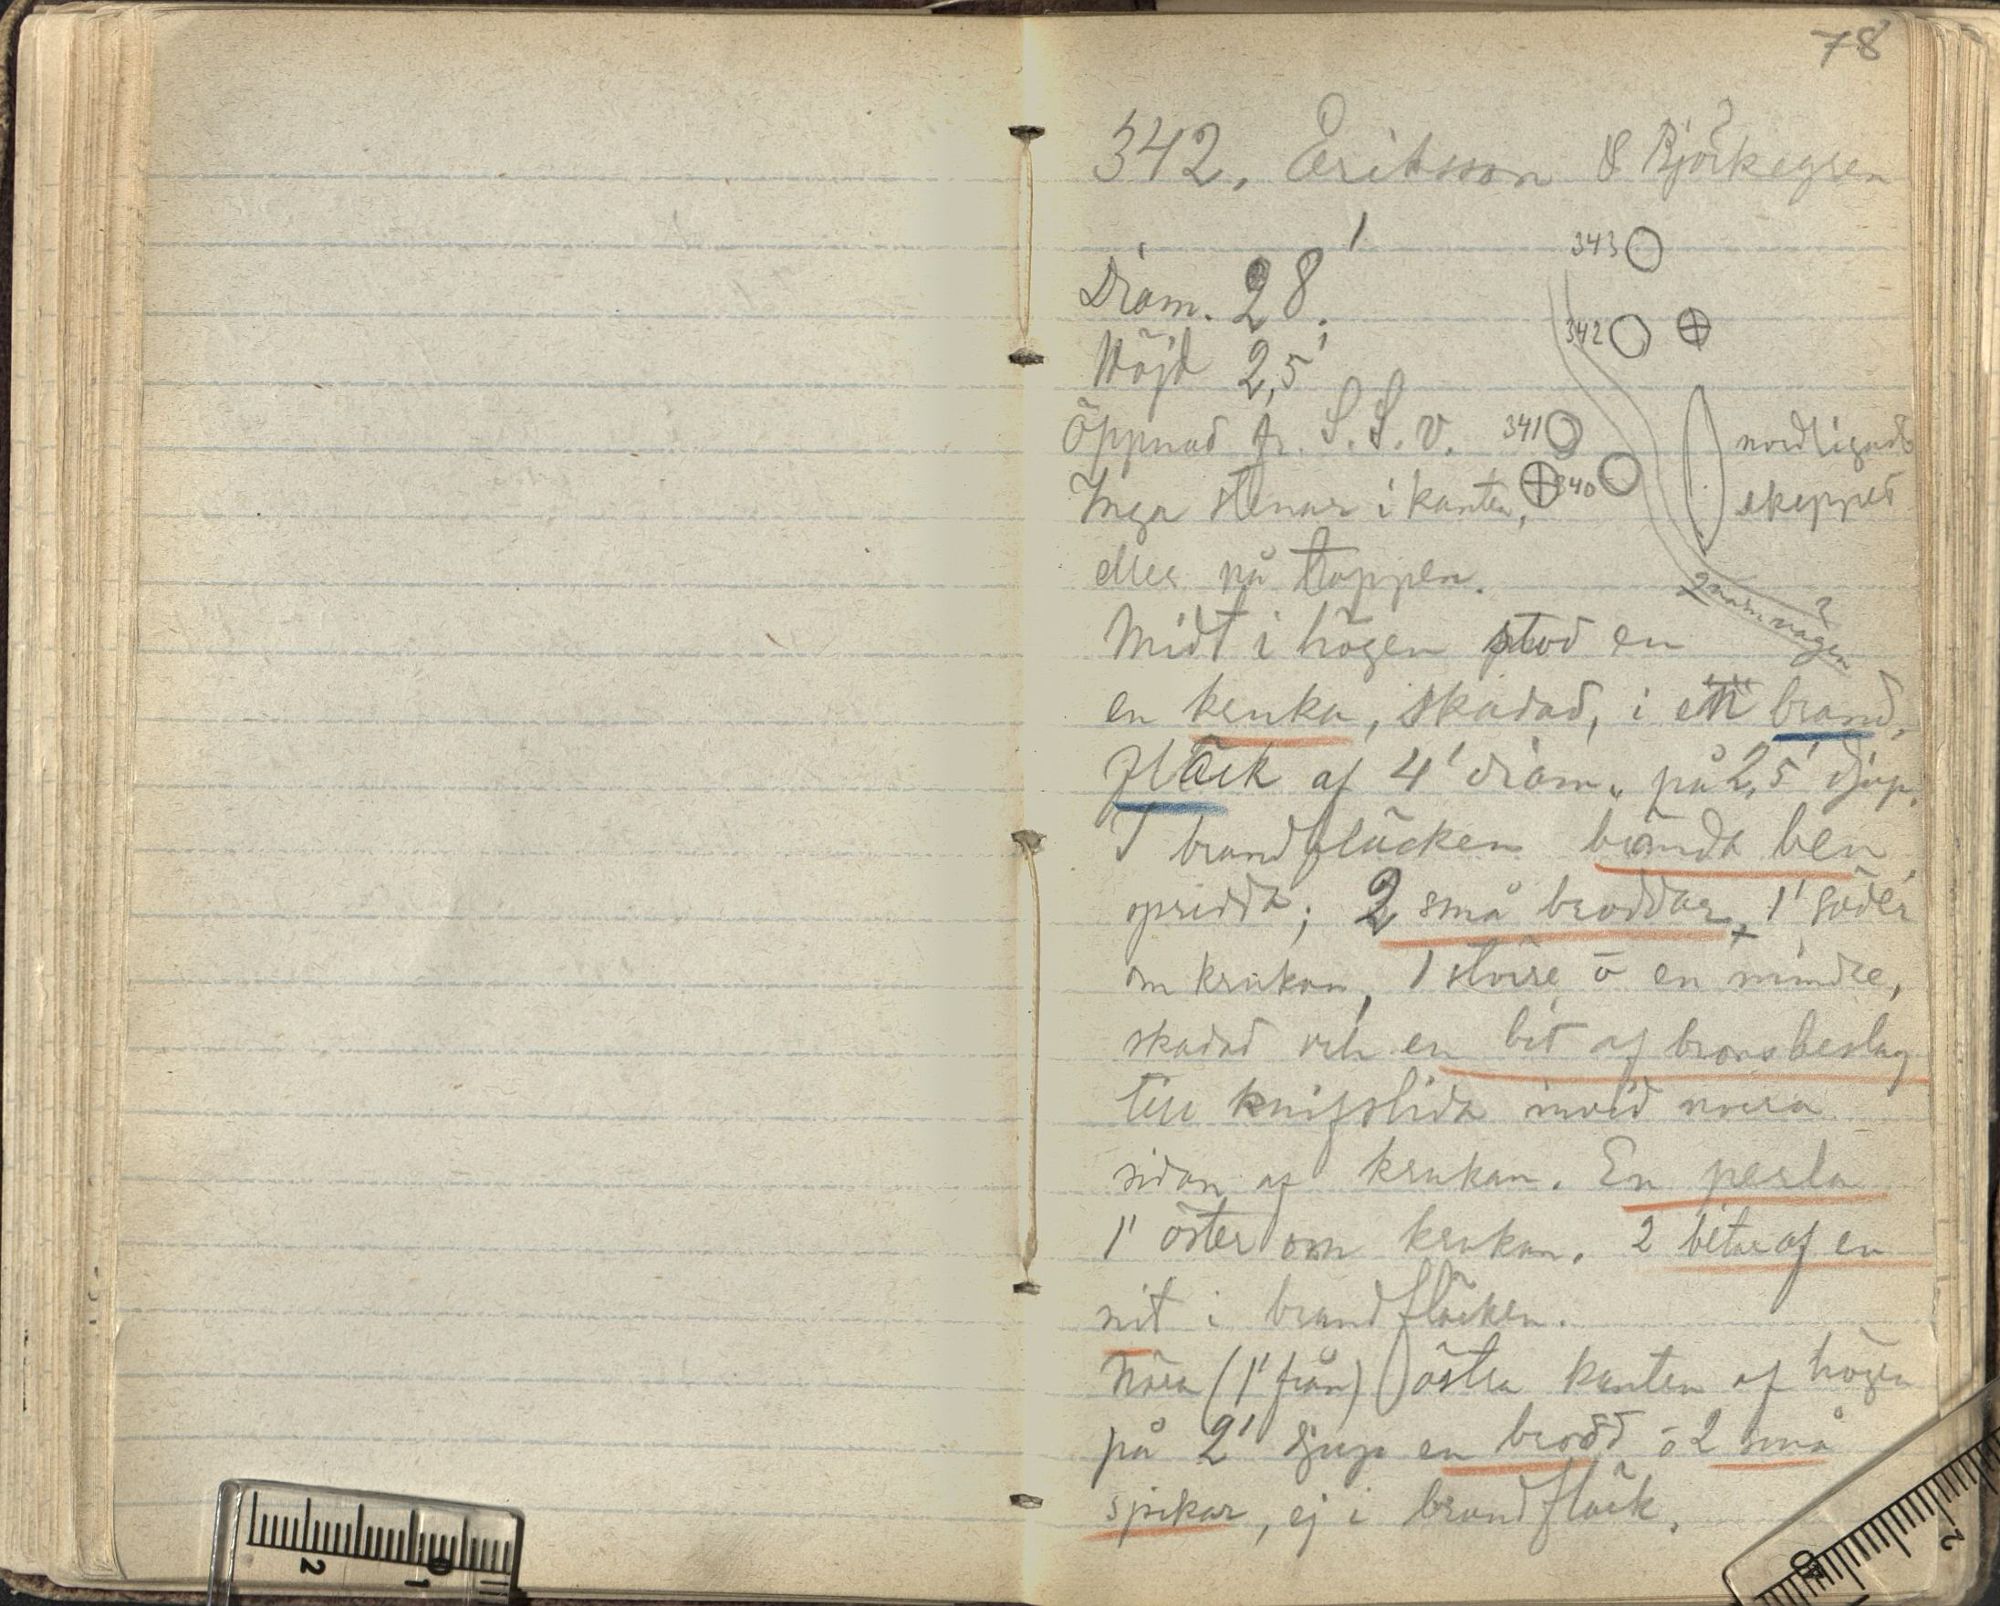 78
342. Eriksson & Björkegren
343
Diam. 28'.
342
Höjd 2,5'
Öppnad fr. S. S. v. 341 nordligaste
Inga stenar i kanten, 340 skeppet
eller på toppen.
Qvarnvägen
Midt i högen stod en
en kruka, skadad, i en brand,
fläck af 4' diam., på 2,5' djup.
I brandfläcken brända ben
spridda; 2 små broddar, 1' söder
om krukan, 1 större o en mindre,
skadad och en bit af bronsbeslag
till knifslida invid norra
sidan af krukan. En perla
1' öster om krukan. 2 bitar af en
nit i brandfläcken.
Nära (1' från) östra kanten af högen
på 2' djup en brodd o 2 små
spikar, ej i brandfläck.
2
1
0
0
2